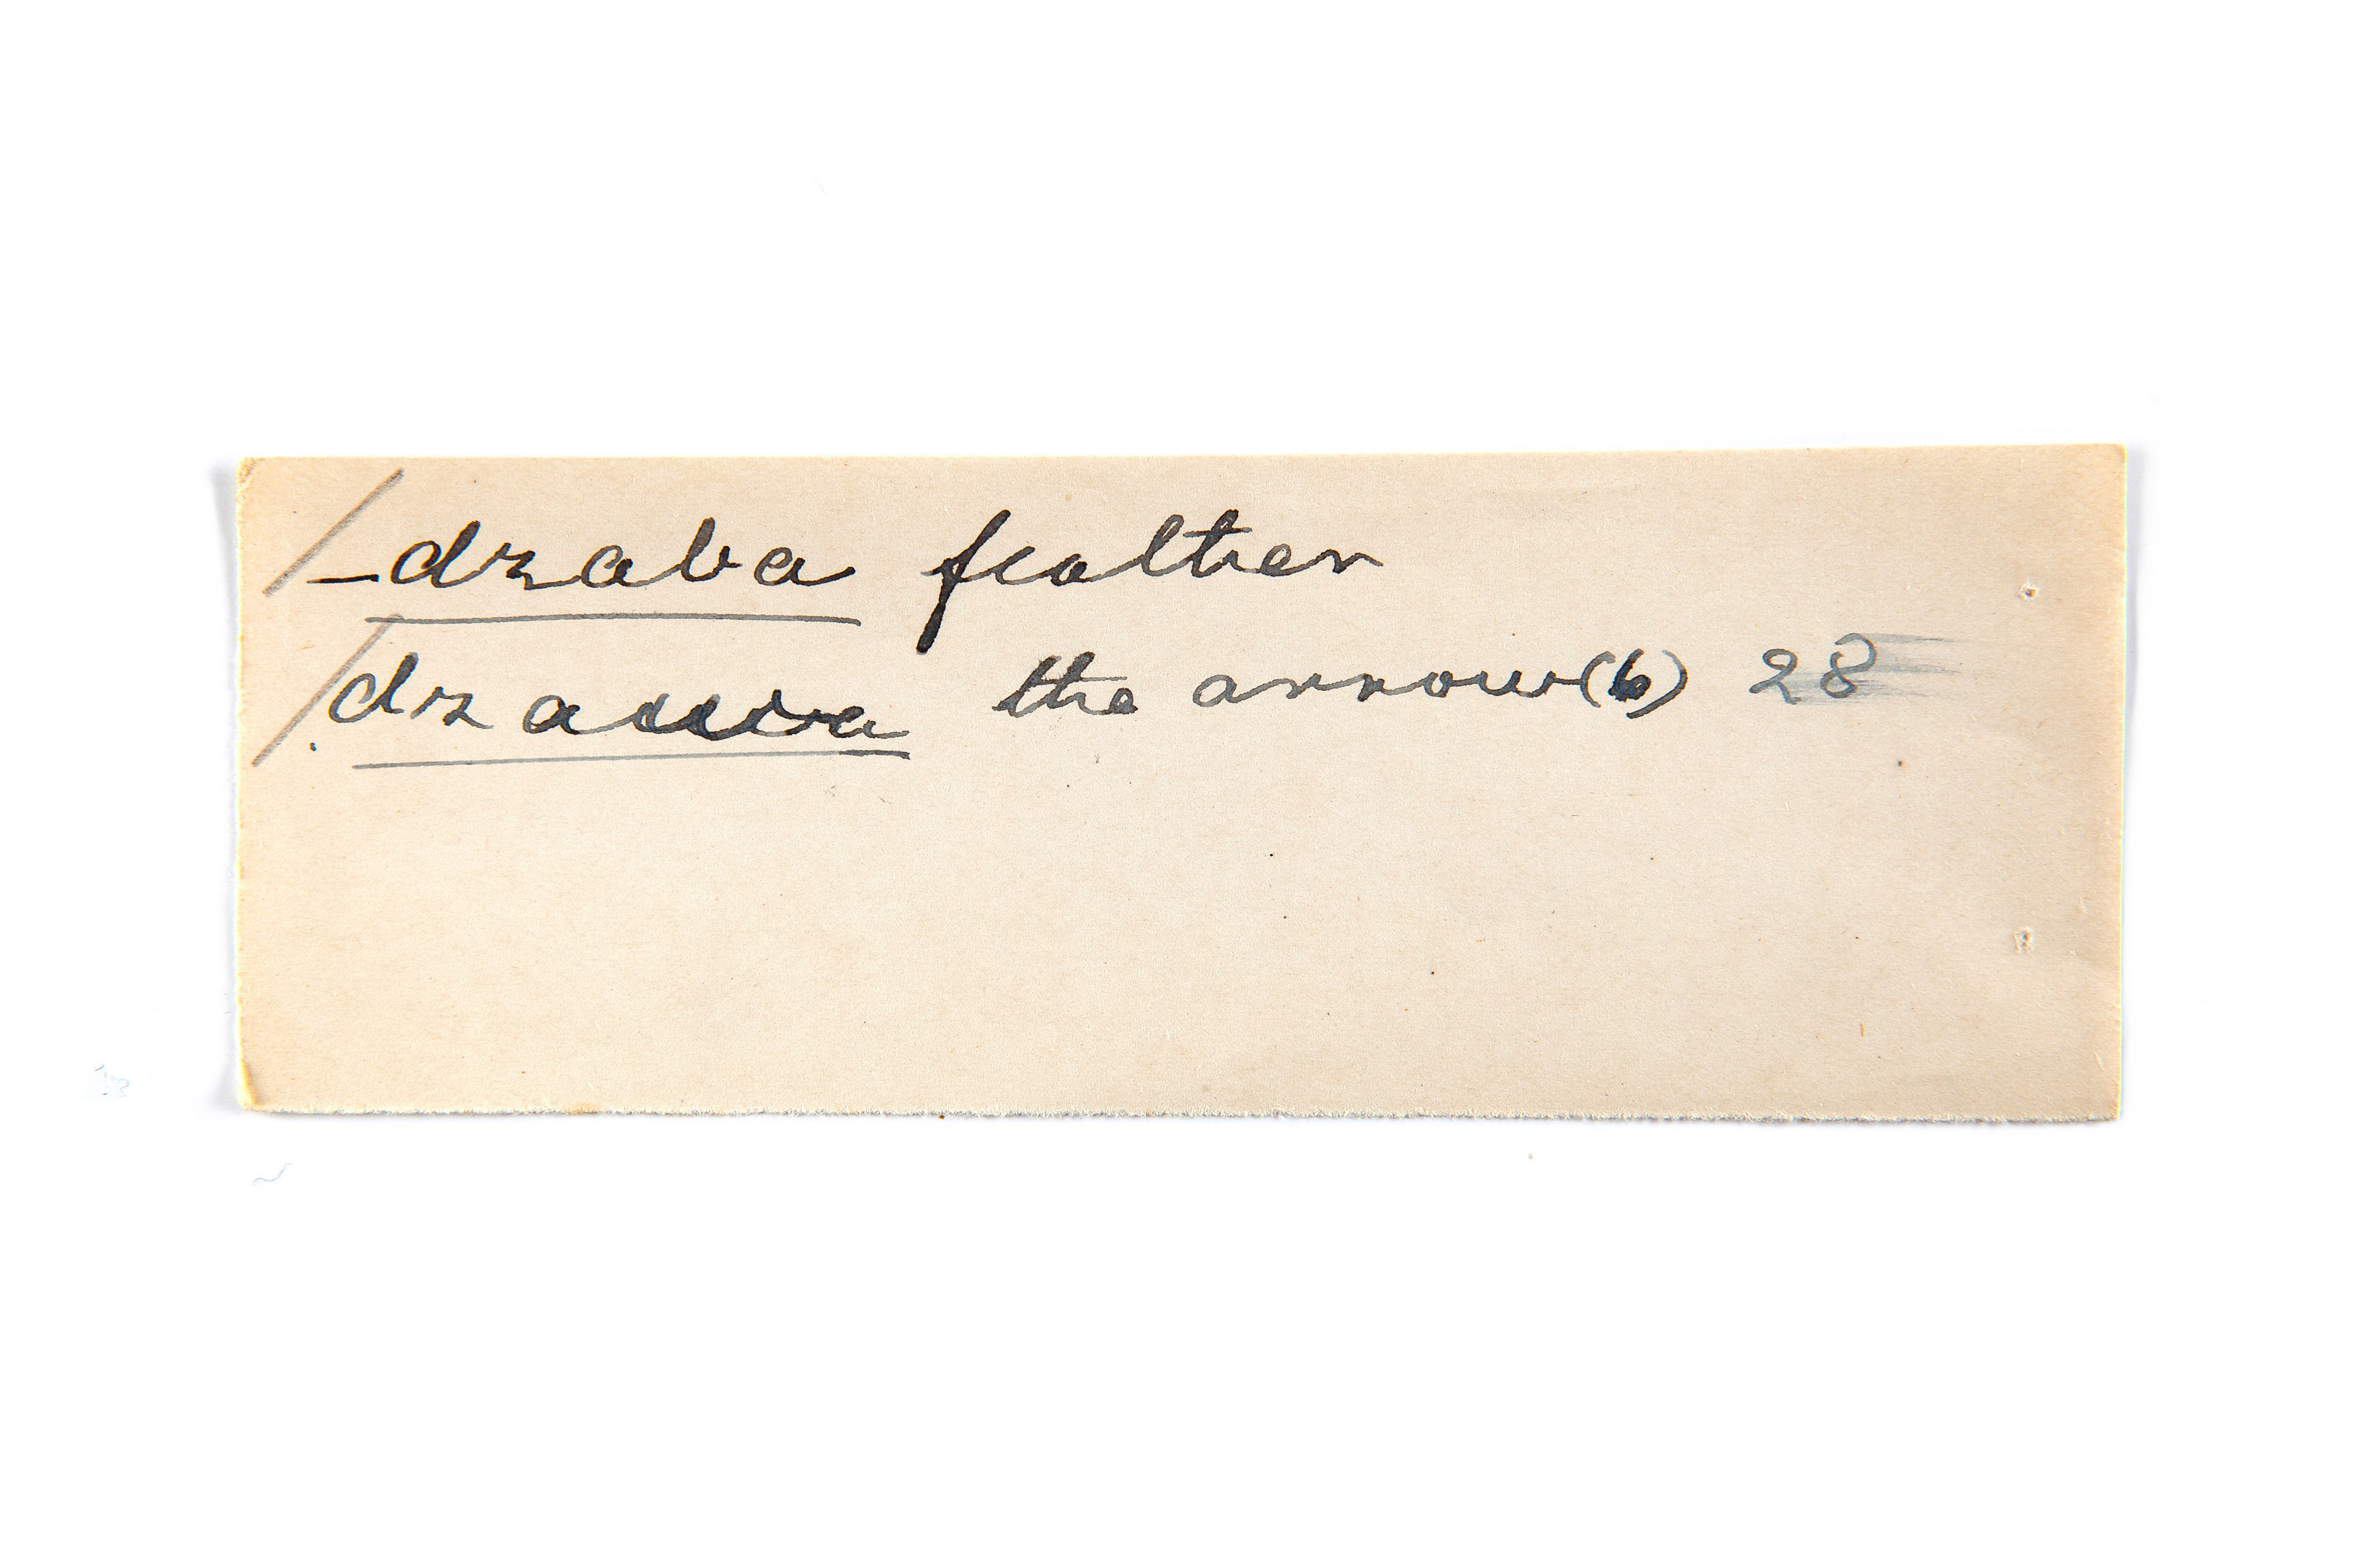 -dzaba feather
dzauwa the arrow(6) 28